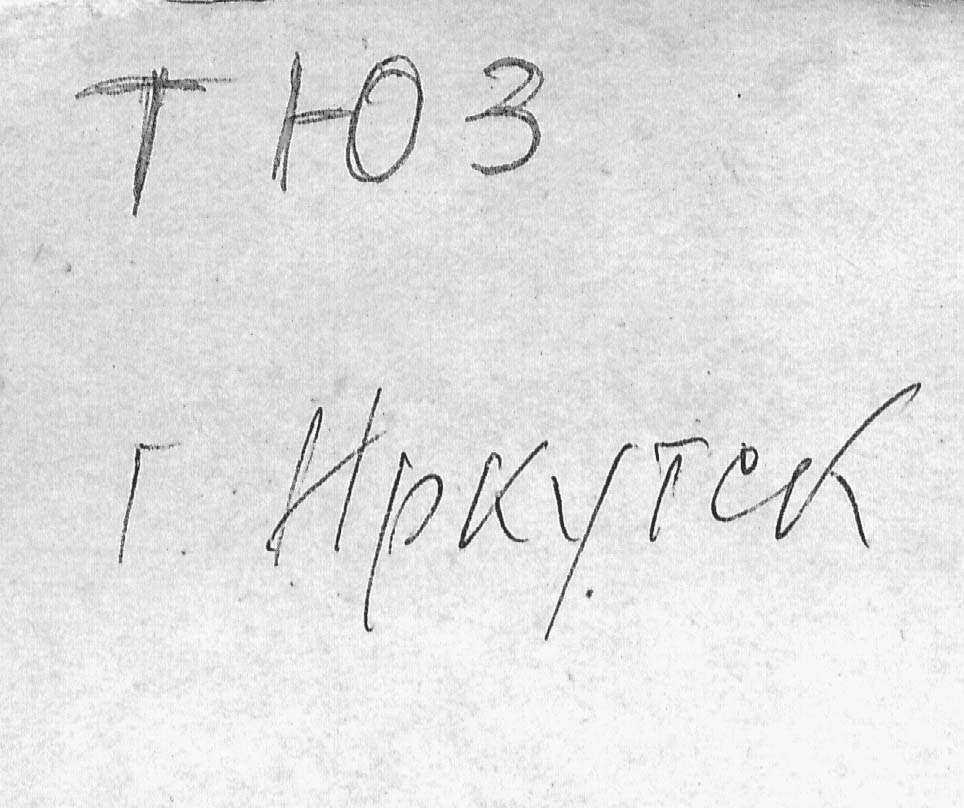 ТЮЗ
г. Иркутск